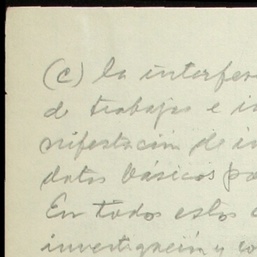 (c) la interfer
de trabajo e i
nifestación de i
datos básicos (pa
En todos estos
investigación y co